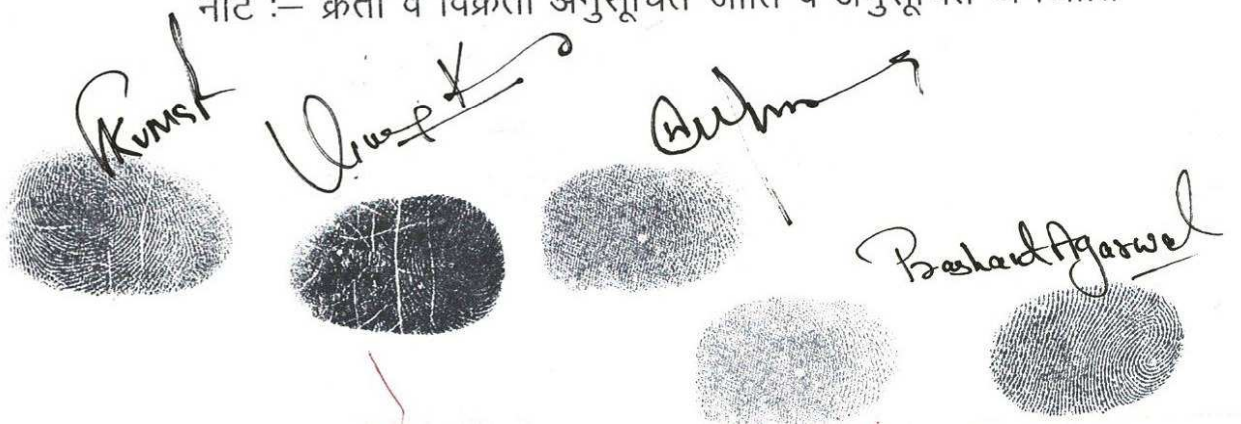 नोट :– क्रेता व विक्रेता अनुसूचित जाति व अनुसूचित
Kumar
Vinay K
Prashant Agarwal